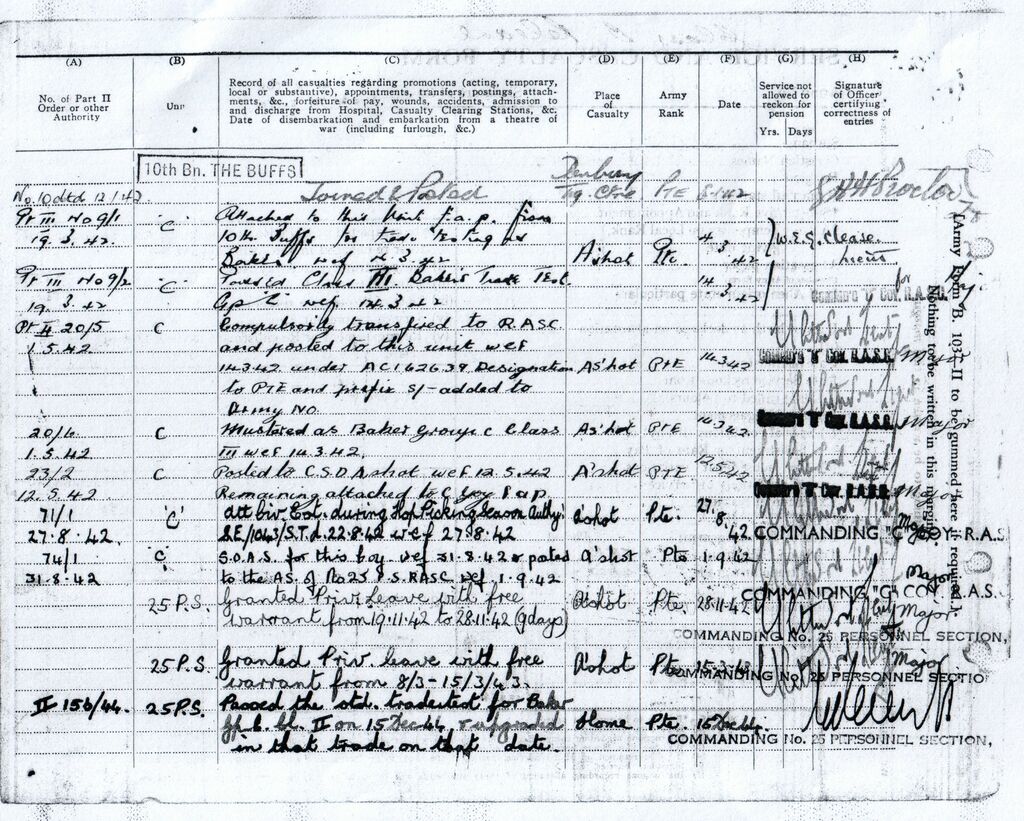 (A) (B) (C) (D) (E) (F) (G) (H)
No. of Part II Order or other Authority
Unit
Record of all casualties regarding promotions (acting, temporary,
local or substantive), appointments, transfers, postings, attach-
ments, &c., forfeiture of pay, wounds, accidents, admission to
and discharge from Hospital, Casualty Clearing Stations, &c.
Date of disembarkation and embarkation from a theatre of
war (including furlough, &c.)
Place of Casualty
Army Rank
Date
Service not allowed to reckon for pension
Yrs. Days
Signature of Officer certifying correctness of entries
10th Bn. THE BUFFS
No. 10 dtd 12.1.42 Joined & Posted Pte
Pt III No 9/1 C Attached to this Unit f.a.p. from
19.3.42. 10th Buffs for trade testing as W.E.G. Clease.
Baker wef 4.3.42 A'shot Pte. 4.3.42 Lieut
Pt III No 9/2 C Passed Class III Bakers Trade Test 14.3.42
19.3.42 Gp C wef 14.3.42
Pt II 20/5 C Compulsorily transfired to R.A.S.C.
1.5.42 and posted to this unit wef
14.3.42 under A.C.I. 626.39. Designation A'shot PTE 14.3.42 Major
to PTE and prefix S/- added to
Army No.
20/6 C Mustered as Baker Group C Class A'shot PTE 14.3.42 Major
1.5.42 III wef 14.3.42.
23/2 C Posted to C.S.D A'shot wef 12.5.42 A'shot PTE 12.5.42
12.5.42 Remaining attached to C Coy f.a.p. Major
71/1 'C' Att Civ. Est. during Hop Picking Season Authy: A'shot Pte. 27.8.42
27.8.42. S.E/1043/S.T.2. 22.8.42 wef 27.8.42 COMMANDING "C" COY. R.A.S. Major
74/1 C. S.O.A.S. for this boy wef 31.8.42 & posted A'shot Pte 1.9.42
31.8.42 to the AS. of No 25 P.S. RASC wef 1.9.42 COMMANDING "C" COY. R.A.S. Major
25 P.S. Granted Priv. leave with free A'shot Pte. 28.11.42 Major
warrant from 19.11.42 to 28.11.42 (9 days) COMMANDING No. 25 PERSONNEL SECTION,
25 P.S. Granted Priv. leave with free A'shot Pte 15.3.43 Major
warrant from 8/3-15/3/43. COMMANDING No. 25 PERSONNEL SECTIO
II 156/44. 25 P.S. Passed the std. trade test for Baker
Gp. C. Cl. II on 15 Dec 44 & upgraded Home Pte. 15 Dec 44.
in that trade on that date. COMMANDING No. 25 PERSONNEL SECTION,
[Army Form B. 103-II to be gummed here if required.]
Nothing to be written in this margin.